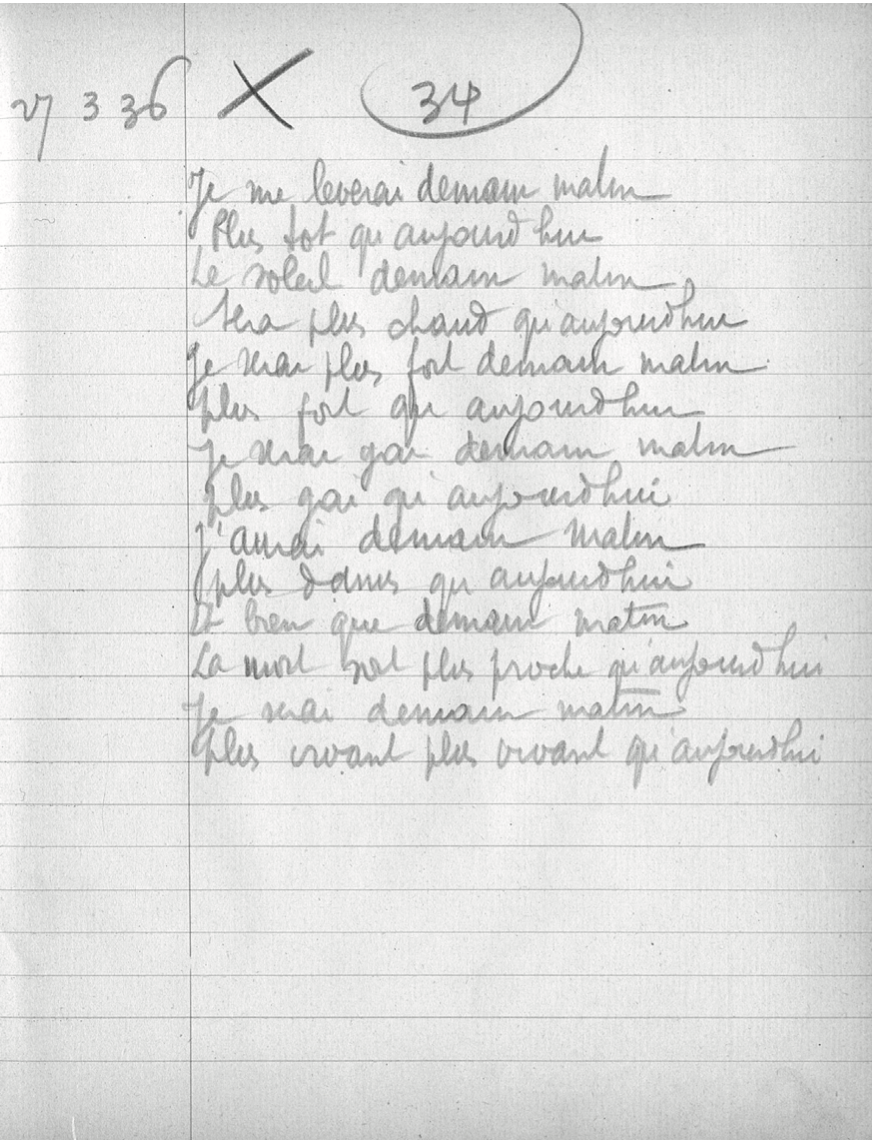 27 3 36 X 34
Je me leverai demain matin
Plus tot qu'aujourd'hui
Le soleil demain matin
Sera plus chaud qu'aujourd'hui
Je serai plus fort demain matin
Plus fort qu'aujourd'hui
Je serai gai demain matin
Plus gai qu'aujourd'hui
J'aurai demain matin
plus d'amis qu'aujourd'hui
Et bien que demain matin
La mort soit plus proche qu'aujourd'hui
Je serai demain matin
Plus vivant plus vivant qu'aujourd'hui